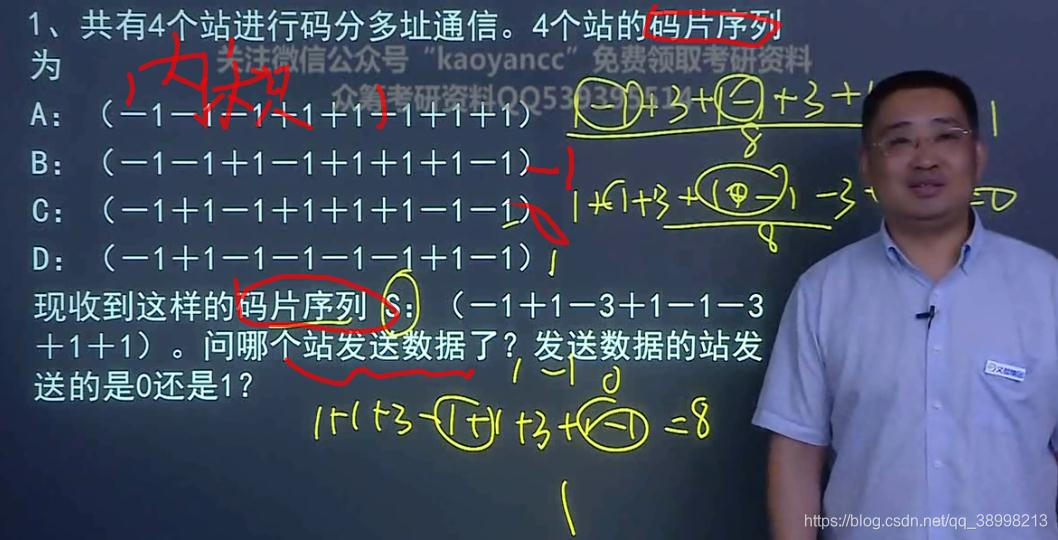 1、共有4个站进行码分多址通信。4个站的码片序列
为
关注微信公众号“kaoyancc”免费领取考研资料
内积
众筹考研资料QQ539395514
A：（－1－1－1＋1＋1－1＋1＋1）
B：（－1－1＋1－1＋1＋1＋1－1） －1
C：（－1＋1－1＋1＋1＋1－1－1） 0
D：（－1＋1－1－1－1－1＋1－1） 1
现收到这样的码片序列 S：（－1＋1－3＋1－1－3
＋1＋1）。问哪个站发送数据了？发送数据的站发
送的是0还是1？
1 －1 0
1+1+3－1+1+3+1－1 =8
1
https://blog.csdn.net/qq_38998213